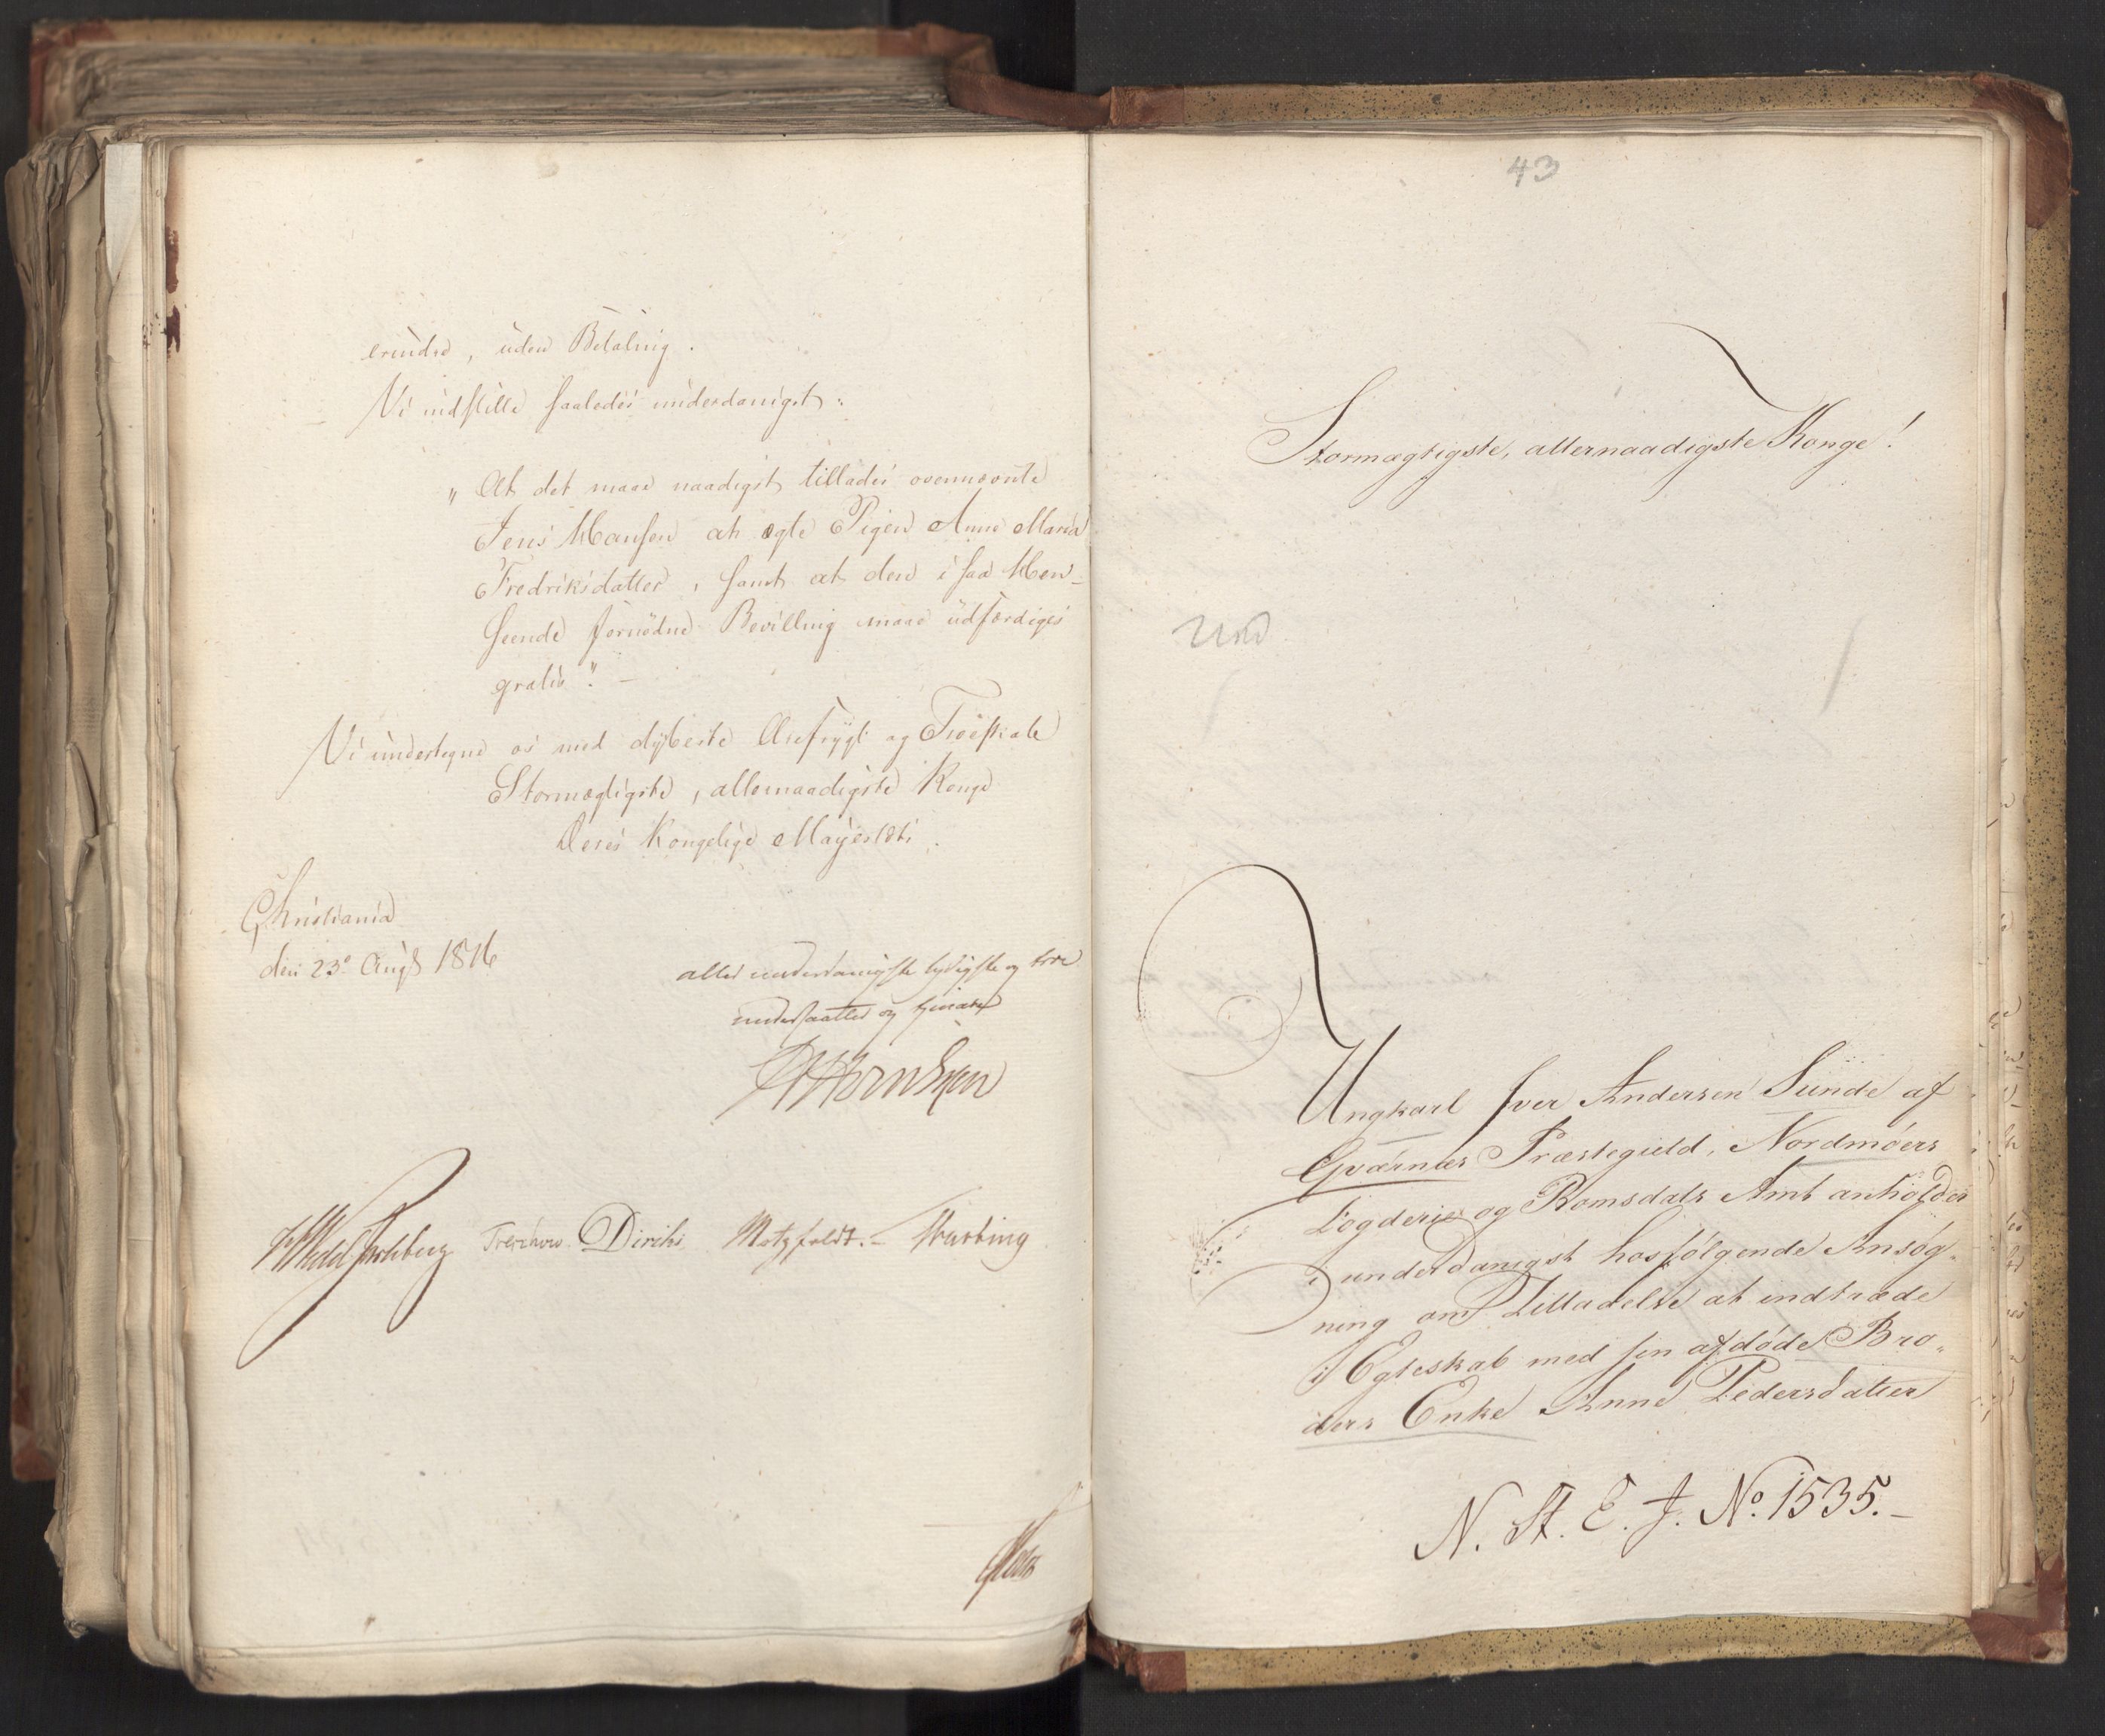 erindre, uden Betaling.
Vi indstille saaledes underdanigst:
"At det maae naadigst tillades ovennævnte
Jens Hansen at ægte Pigen Anne Maria
Fredriksdatter, samt at den i saa Hen-
seende fornødne Bevilling maae udfærdiges
gratis". -
Vi undertegne os med dybeste Ærefrygt og Troeskab
Stormægtigste, allernaadigste Konge
Deres Kongelige Mayestæts.
Christiania
den 23e Augs 1816
aller underdanigste lydigste og troe
undersaatter og tjenere
Wedel Jarlsberg Treschow Diriks Motzfeldt. -
43
Stormægtigste, allernaadigste Konge!
Ungkarl Iver Andersen Sunde af
Qværnæs Præstegield, Nordmøers
Fogderie og Romsdals Amt anholder
i underdanigst hosfølgende Ansøg-
ning om Tilladelse at indtræde
i Egteskab med sin afdøde Bro-
ders Enke Anne Pedersdatter
N. St. E. J. No. 1535. -